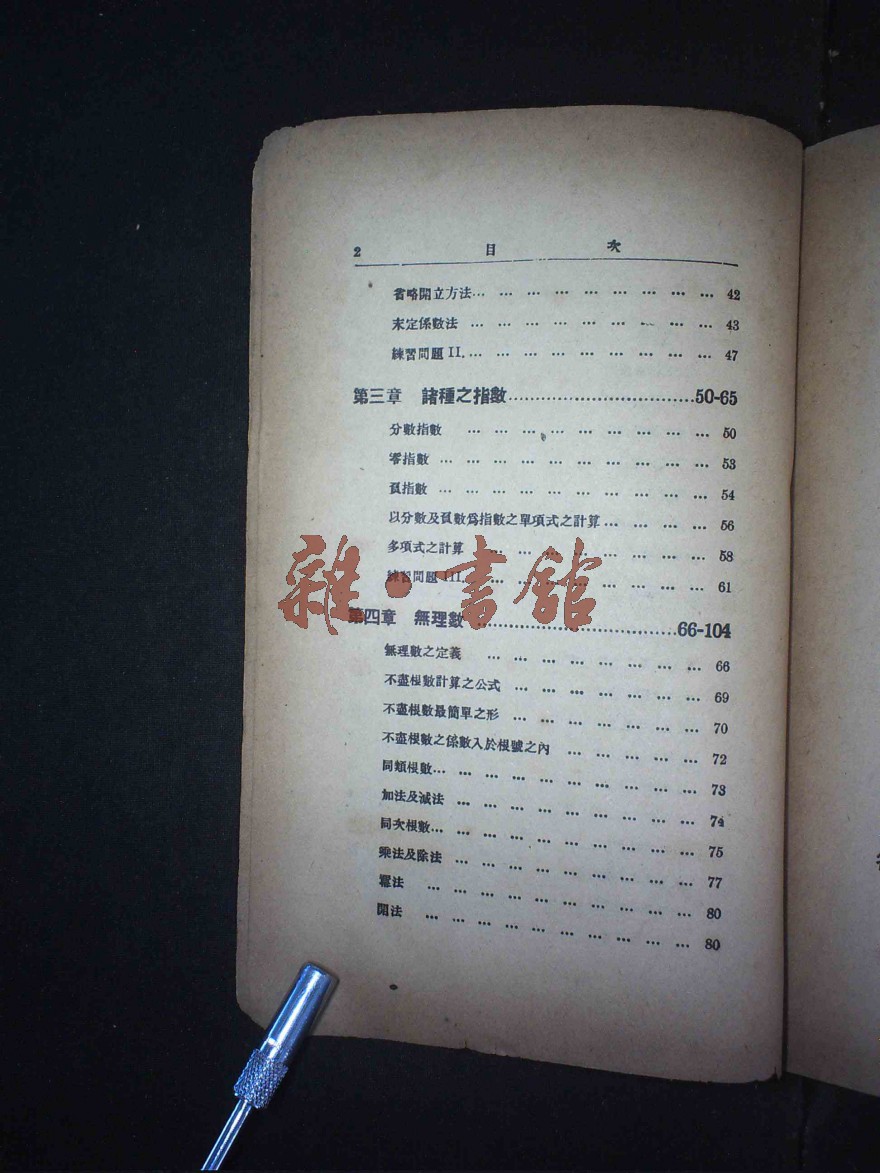 2 目 次
省略開立方法… … … … … … … … … 42
末定係數法 … … … … … … … … … 43
練習問題 II.… … … … … … … … … 47
第三章 諸種之指數……………………………50-65
分數指數 … … … … … … … … … 50
零指數 … … … … … … … … … … 53
負指數 … … … … … … … … … … 54
以分數及負數爲指數之單項式之計算… … … … 56
多項式之計算 … … … … … … … … 58
練習問題 III.… … … … … … … … … 61
第四章 無理數………………………………66-104
無理數之定義 … … … … … … … … 66
不盡根數計算之公式 … … … … … … … 69
不盡根數最簡單之形 … … … … … … … 70
不盡根數之係數入於根號之內 … … … … … 72
同類根數… … … … … … … … … … 73
加法及減法 … … … … … … … … … 74
同次根數… … … … … … … … … … 75
乘法及除法 … … … … … … … … … 77
羃法 … … … … … … … … … … 80
開法 … … … … … … … … … … 80
雜·書館